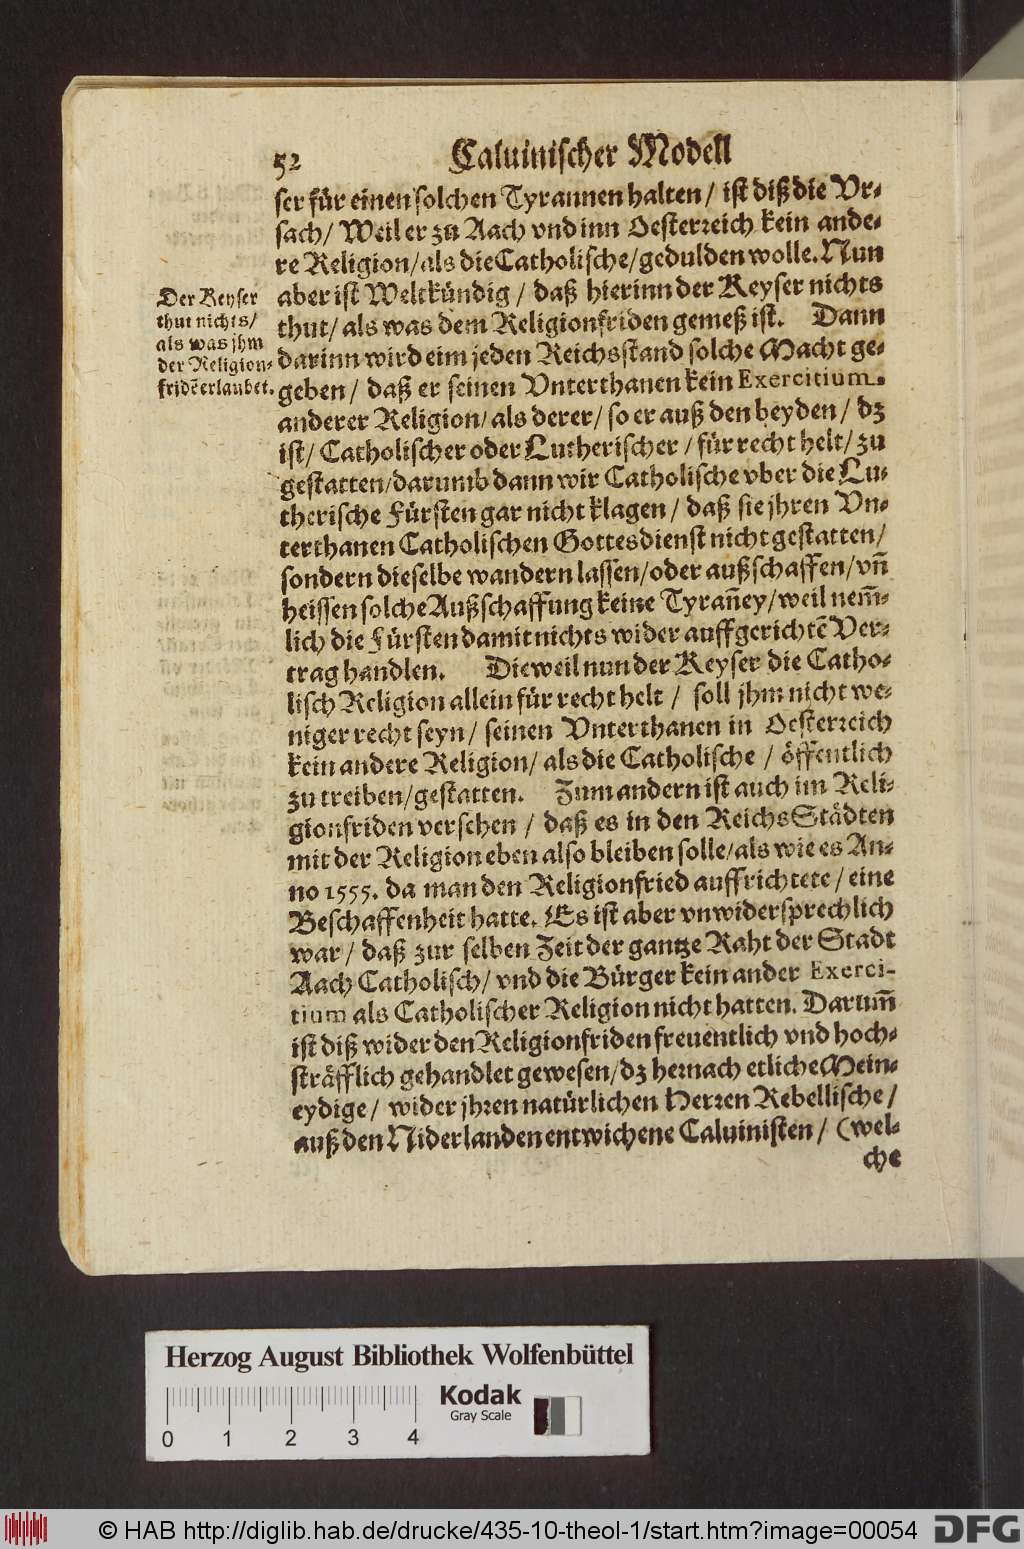 52 Caluinischer Modell
ser für einen solchen Tyrannen halten / ist diß die Vr-
sach / Weil er zu Aach vnd inn Oesterreich kein ande-
re Religion / als die Catholische / gedulden wolle. Nun
aber ist Weltkündig / daß hierinn der Keyser nichts
thut / als was dem Religionfriden gemeß ist. Dann
darinn wird eim jeden Reichsstand solche Macht ge-
geben / daß er seinen Vnterthanen kein Exercitium.
anderer Religion / als derer / so er auß den beyden / dz
ist / Catholischer oder Lutherischer / für recht helt / zu
gestatten / darumb dann wir Catholische vber die Lu-
therische Fürsten gar nicht klagen / daß sie jhren Vn-
terthanen Catholischen Gottesdienst nicht gestatten /
sondern dieselbe wandern lassen / oder außschaffen / vñ
heissen solche Außschaffung keine Tyrañey / weil nem̃-
lich die Fürsten damit nichts wider auffgerichtẽ Ver-
trag handlen. Dieweil nun der Keyser die Catho-
lisch Religion allein für recht helt / soll jhm nicht we-
niger recht seyn / seinen Vnterthanen in Oesterreich
kein andere Religion / als die Catholische / öffentlich
zu treiben / gestatten. Zum andern ist auch im Reli-
gionfriden versehen / daß es in den ReichsStädten
mit der Religion eben also bleiben solle / als wie es An-
no 1555. da man den Religionfried auffrichtete / eine
Beschaffenheit hatte. Es ist aber vnwidersprechlich
war / daß zur selben Zeit der gantze Raht der Stadt
Aach Catholisch / vnd die Bürger kein ander Exerci-
tium als Catholischer Religion nicht hatten. Darum̃
ist diß wider den Religionfriden freuentlich vnd hoch-
sträfflich gehandlet gewesen / dz hernach etliche Mein-
eydige / wider jhren natürlichen Herren Rebellische /
auß den Niderlanden entwichene Caluinisten / (wel-
che
Der Keyser
thut nichts /
als was jhm
der Religion-
fridẽ erlaubet.
Herzog August Bibliothek Wolfenbüttel
Kodak
Gray Scale
0 1 2 3 4
© HAB http://diglib.hab.de/drucke/435-10-theol-1/start.htm?image=00054
DFG